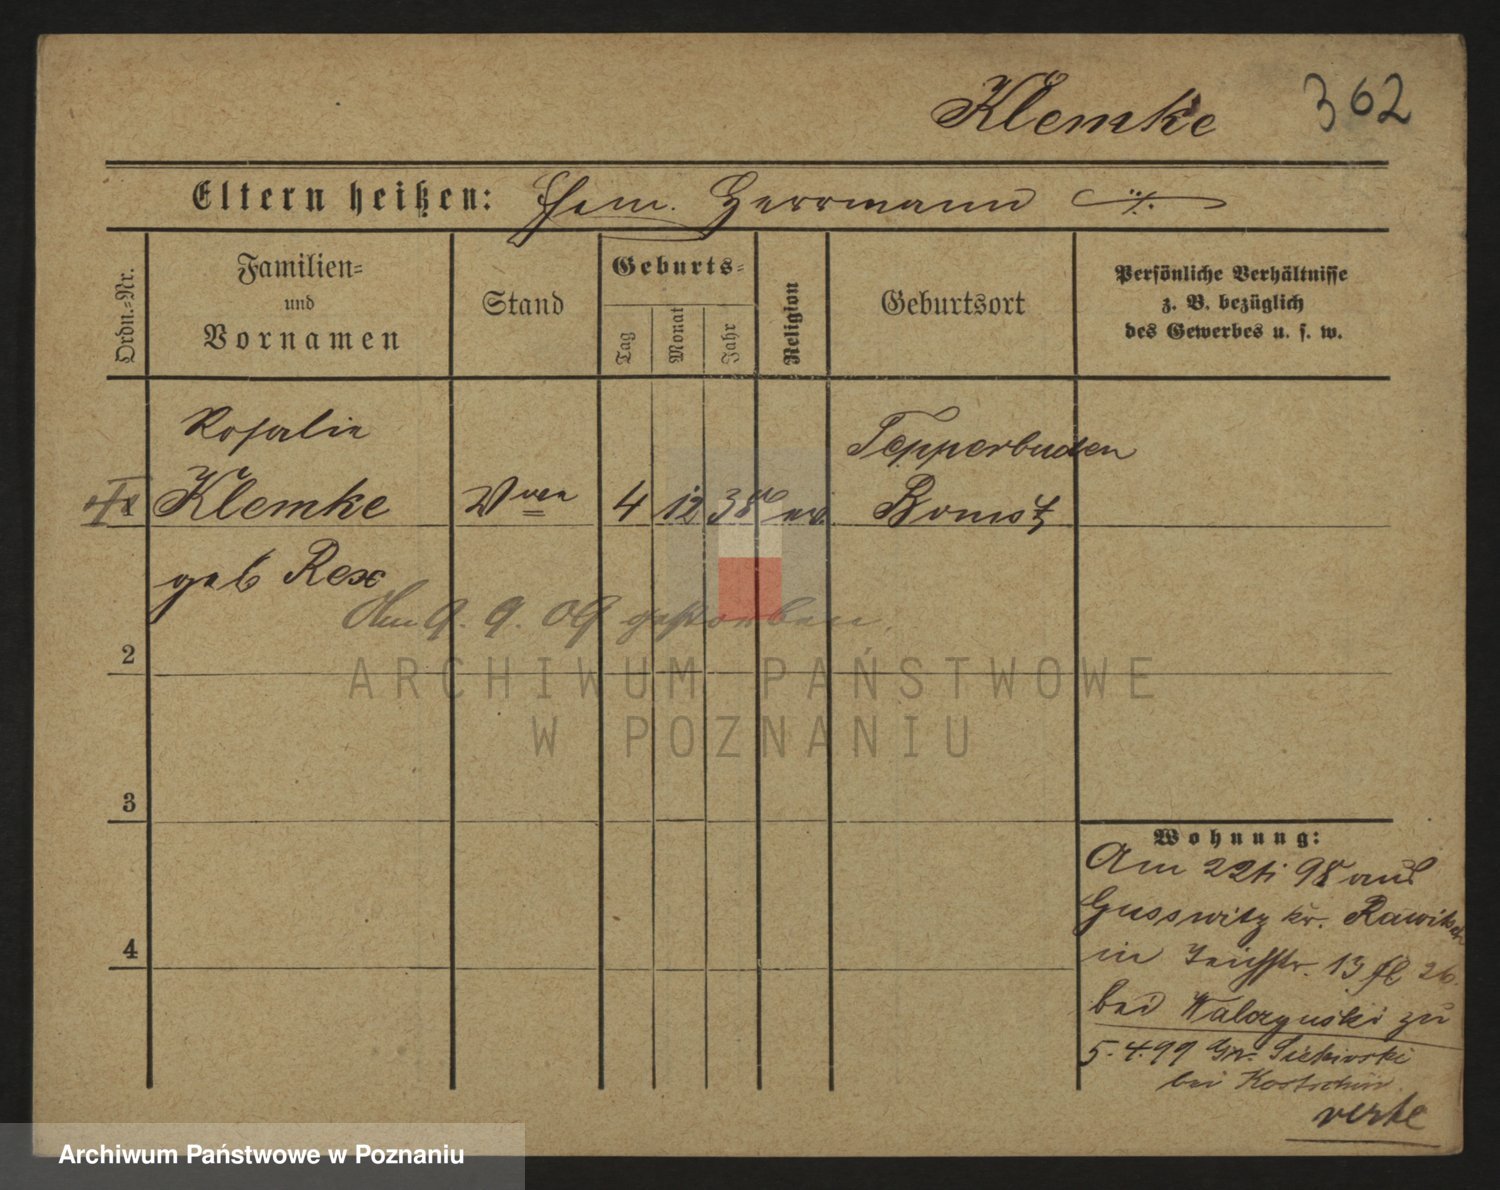 Klemke 362
Eltern heißen: Ehem. Herrmann
Ordn.=Nr.
Familien=
und
Vornamen
Stand
Geburts=
Tag
Monat
Jahr
Religion
Geburtsort
Persönliche Verhältnisse
z. B. bezüglich
des Gewerbes u. s. w.
Rosalie
Klemke
geb Rex
Wwe
4 12 38 ev.
Tepperbuden
Bomst
Am 9. 9. 09 gestorben.
2
3
4
Wohnung:
Am 22/ 98 aus
Gusswitz kr. Rawitsch
in 13 26.
bei zu
5. 4. 99 Gr.
bei Kostschin
verte
ARCHIWUM PAŃSTWOWE
W POZNANIU
Archiwum Państwowe w Poznaniu